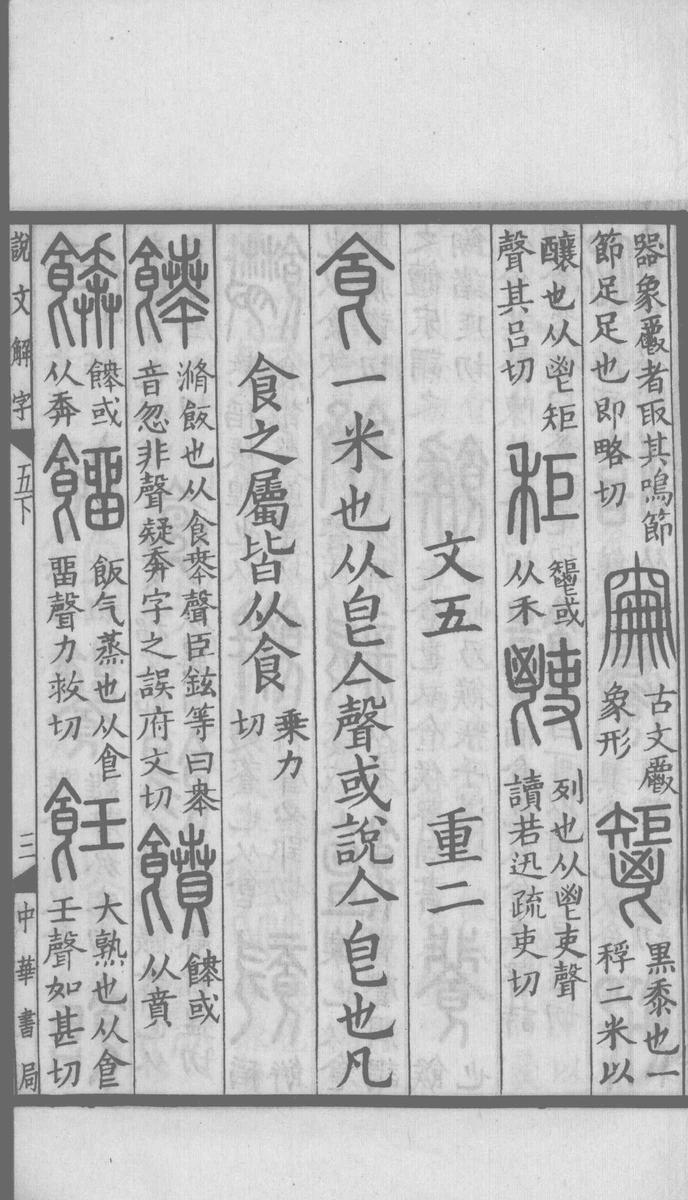 器象𩰪者取其鳴節
節足足也即略切
𩰥古文𩰪
象形
𩰤黑黍也一
稃二米以
釀也从鬯矩
聲其呂切
秬𩰤或
从禾
𩰢列也从鬯吏聲
讀若迅疏吏切
文五 重二
食一米也从皀亼聲或說亼皀也凡
食之屬皆从食
乘力
切
䬸滫飯也从食𠦪聲臣鉉等曰𠦪
音忽非聲疑奔字之誤府文切
饙䬸或
从賁
餴䬸或
从奔
餾飯气蒸也从食
畱聲力救切
飪大熟也从食
壬聲如甚切
說文解字 五下 三 中華書局